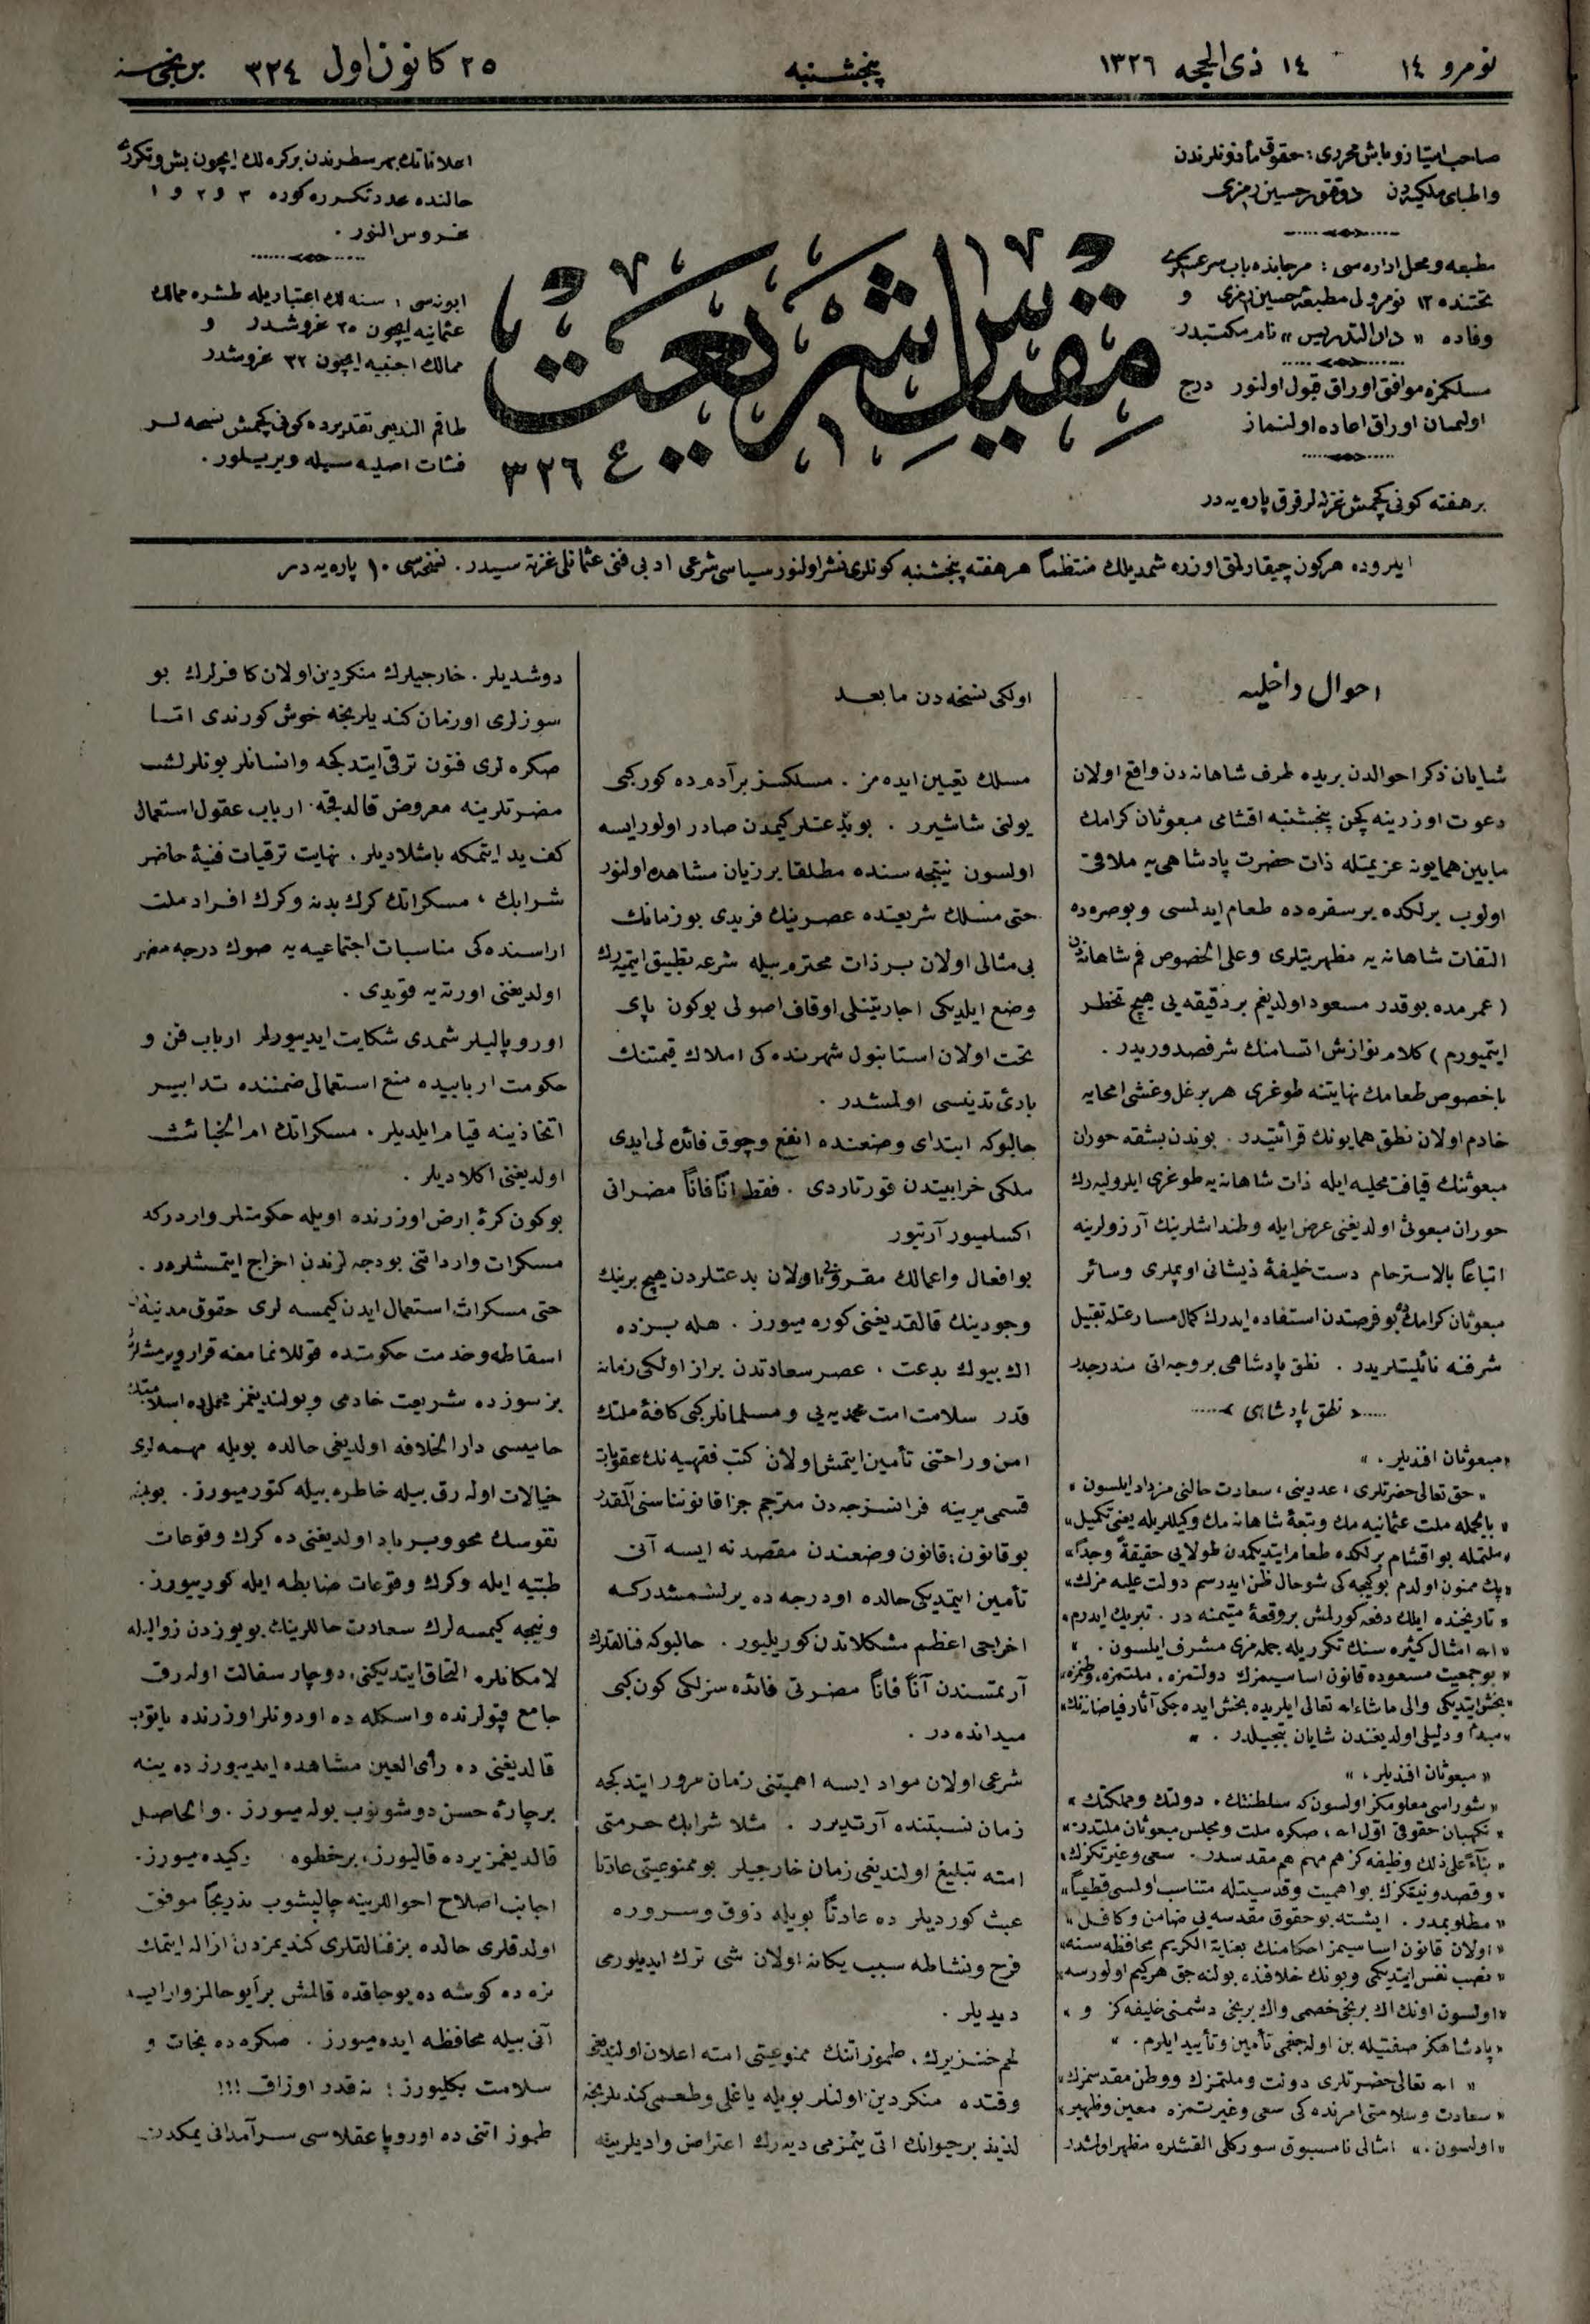 نومرو ١٤
١٤ ذی الحجه ١٣٢٦
پنجشنبه
٢٥ كانون اول ٣٢٤ برنجی سنه
صاحب امتیاز و باش محرری : حقوق مأذونلرندن
و اطبای ملكیه‌دن دوقتور حسین رمزی
مطبعه و محل اداره‌سی : مرجانده باب سرعسكری
تحتنده ١٣ نومرولی مطبعهٔ حسین رمزی و
وفاده « دار التدریس » نام مكتبدر
مسلكمزه موافق اوراق قبول اولنور درج
اولنمیان اوراق اعاده اولنماز
بر هفته كونی كچمش غزته‌لر قرق پاره‌یه در
مقیاس شریعت
٣٢٦
اعلاناتك بهر سطرندن بر كره‌لك ایچون بش و تكرری
حالنده عدد تكرره كوره ٣ و ٢ و ١
غروش النور .
ابونه‌سی : سنه‌لك اعتباریله طشره ممالك
عثمانیه ایچون ٢٥ غروشدر و
ممالك اجنبیه ایچون ٣٢ غروشدر
طاقم الندیغی تقدیرده كونی كچمش نسخه‌لر
فئات اصلیه سیله ویریلور .
ایلروده هركون چیقارلمق اوزره شمدیلك منتظماً هر هفته پنجشنبه كونلری نشر اولنور سیاسی شرعی ادبی فنی عثمانلی غزته سیدر . نسخه‌سی ١٠ پاره‌یه در
احوال داخلیه
شایان ذكر احوالدن بریده طرف شاهانه‌دن واقع اولان
دعوت اوزرینه كچن پنجشنبه اقشامی مبعوثان كرامك
مابین همایونه عزیمتله ذات حضرت پادشاهی‌یه ملاقی
اولوب برلكده بر سفره‌ده طعام ایدلمسی و بوصره‌ده
التفات شاهانه‌یه مظهریتلری و علی الخصوص فم شاهانه‌دن
( عمرمده بوقدر مسعود اولدیغم بر دقیقه‌یی هیچ تخطر
ایتمیورم ) كلام نوازش اتسامنك شرفصدوریدر .
باخصوص طعامك نهایتنه طوغری هر بر غل و غشی امحایه
خادم اولان نطق همایونك قرائتیدر . بوندن بشقه حوران
مبعوثنك قیافت محلیه ایله ذات شاهانه‌یه طوغری ایلرولیه‌رك
حوران مبعوثی اولدیغنی عرض ایله وطنداشلرینك آرزولرینه
اتباعاً بالاسترحام دست خلیفهٔ ذیشانی اوپملری و سائر
مبعوثان كرامك ده بو فرصتدن استفاده ایدرك كمال مسارعتله تقبیل
شرفنه نائلیتلریدر . نطق پادشاهی بروجه آتی مندرجدر
نطق پادشاهی
« مبعوثان افندیلر . »
« حق تعالی حضرتلری ، عددینی ، سعادت حالنی مزداد ایلسون »
« بالجمله ملت عثمانیه مك و تبعهٔ شاهانه مك وكیللریله یعنی تكمیل »
« ملتمله بو اقشام برلكده طعام ایتدیكمدن طولایی حقیقةً وجداً »
« پك ممنون اولدم بو كیجه‌كی شو حال ظن ایدرسم دولت علیه مزك »
« تاریخنده ایلك دفعه كورلمش بر وقعهٔ متیمنه در . تبریك ایدرم »
« الله امثال كثیره سنك تكرریله جمله مزی مشرف ایلسون . »
« بو جمعیت مسعوده قانون اساسیمزك دولتمزه ، ملتمزه ، وطنمزه »
« بخش ایتدیكی والی ماشاءالله تعالی ایلریده بخش ایده جكی آثار فیاضانه‌نك »
« مبدأ و دلیلی اولدیغندن شایان تبجیلدر . »
« مبعوثان افندیلر ، »
« شوراسی معلومكز اولسون كه سلطنتك ، دولتك و مملكتك »
« نكهبان حقوقی اول الله ، صكره ملت و مجلس مبعوثان ملتدر »
« بناءً علی ذلك وظیفه كز هم مهم هم مقدسدر . سعی و غیرتكزك »
« و قصد و نیتكزك بو اهمیت و قدسیتله متناسب اولمسی قطعیاً »
« مطلوبمدر . ایشته بو حقوق مقدسه‌یی ضامن و كافل »
« اولان قانون اساسیمز احكامنك بعنایة الكریم محافظه سنه »
« نصب نفس ایتدیكمی و بونك خلافنده بولنه‌جق هركیم اولورسه »
« اولسون اونك اك برنجی خصمی و اك برنجی دشمنی خلیفه كز و »
« پادشاهكز صفتیله بن اوله‌جغمی تأمین و تأیید ایلرم . »
« الله تعالی حضرتلری دولت و ملتمزك و وطن مقدسمزك »
« سعادت و سلامتی امرنده كی سعی و غیرتمزه معین و ظهیر »
« اولسون . » امثالی نامسبوق سوركلی القشلره مظهر اولمشدر
اولكی نسخه‌دن مابعد
مسلك تعیین ایده‌مز . مسلكسز بر آدم ده كور كبی
یولنی شاشیرر . بو بدعتلر كیمدن صادر اولورایسه
اولسون نتیجه سنده مطلقا بر زیان مشاهده اولنور
حتی مسلك شریعتده عصرینك فریدی بو زمانك
بی مثالی اولان بر ذات محترم بیله شرعه تطبیق ایتمیه‌رك
وضع ایلدیكی اجارتینلی اوقاف اصولی بوكون پای
تخت اولان استانبول شهرنده كی املاك قیمتنك
بادئ تدنیسی اولمشدر .
حالبوكه ابتدای وضعنده انفع و چوق فائده لی ایدی
ملكی خرابیتدن قورتاردی . فقط آناً فآناً مضراتی
اكسلمیور آرتیور
بو افعال و اعمالك مقرونی اولان بدعتلردن هیچ برینك
وجودینك قالقدیغنی كوره میورز . هله بزده
اك بیوك بدعت ، عصر سعادتدن براز اولكی زمانه
قدر سلامت امت محمدیه‌یی و مسلمانلر كبی كافهٔ ملتك
امن و راحتنی تأمین ایتمش اولان كتب فقهیه نك عقوبات
قسمی یرینه فرانسزجه‌دن مترجم جزا قانوننامه‌سنی آلمقدر
بو قانون ؛ قانون وضعندن مقصد نه ایسه آنی
تأمین ایتمدیكی حالده اودرجه ده یرلشمشدركه
اخراجی اعظم مشكلاتدن كوریلیور . حالبوكه فنالقلرك
آرتمسندن آناً فآناً مضرتی فائده سزلكی كون كبی
میدانده در .
شرعی اولان مواد ایسه اهمیتنی زمان مرور ایتدكجه
زمان نسبتنده آرتدیرر . مثلا شرابك حرمتی
امته تبلیغ اولندیغی زمان خارجیلر بو ممنوعیتی عادتا
عبث كوردیلر ده عادتاً بویله ذوق و سروره
فرح و نشاطه سبب یكانه اولان شی ترك ایدیلورمی
دیدیلر .
لحم خنزیرك ، طموز اتنك ممنوعیتی امته اعلان اولندیغی
وقتده منكر دین اولنلر بویله یاغلی و طعمی كندیلرینجه
لذیذ بر حیوانك اتی ینمزمی دیه‌رك اعتراض وادیلرینه
دوشدیلر . خارجیلرك منكر دین اولان كافرلرك بو
سوزلری اوزمان كندیلرینجه خوش كورندی امّا
صكره لری فنون ترقی ایتدكجه و انسانلر بونلرك
مضرتلرینه معروض قالدقجه ارباب عقول استعمال
كف ید ایتمكه باشلادیلر ، نهایت ترقیات فنیهٔ حاضر
شرابك ، مسكراتك كرك بدنه و كرك افراد ملت
اراسنده كی مناسبات اجتماعیه یه صوك درجه مضر
اولدیغنی اورته یه قویدی .
اوروپالیلر شمدی شكایت ایدییورلر ارباب فن و
حكومت اربابیده منع استعمالی ضمننده تدابیر
اتخاذینه قیام ایلدیلر . مسكراتك ام الخبائث
اولدیغنی اكلادیلر .
بوكون كرهٔ ارض اوزرنده اویله حكومتلر واردركه
مسكرات وارداتنی بودجه لرندن اخراج ایتمشلردر .
حتی مسكرات استعمال ایدن كیمسه لری حقوق مدنیه‌دن
اسقاطه و خدمت حكومتده قوللانمامغه قرار ویرمشلر
بز سوزده شریعت خادمی و بولندیغمز محلده اسلامیتك
حامیسی دار الخلافه اولدیغی حالده بویله مهمه لری
خیالات اوله رق بیله خاطره بیله كتورمیورز .
نفوسك محو و برباد اولدیغنی ده كرك وقوعات
طبیه ایله و كرك وقوعات ضابطه ایله كورییورز .
و نیجه كیمسه لرك سعادت حاللرینك بو یوزدن زوالیله
لامكانلره التحاق ایتدیكنی ، دوچار سفالت اوله رق
جامع قپولرنده و اسكله ده اودونلر اوزرنده یاتوب
قالدیغنی ده رأی العین مشاهده ایدییورز ده ینه
بر چارهٔ حسن دوشونوب بوله میورز . و الحاصل
قالدیغمز یرده قالیورز ، بر خطوه كیده میورز .
اجانب اصلاح احواللرینه چالیشوب تدریجاً موفق
اولدقلری حالده بز فنالقلری كندیمزدن ازاله ایتمك
نره ده كوشه ده بوجاقده قالمش بر ایو حالمز وار ایسه
آنی بیله محافظه ایده میورز . صكره ده نجات و
سلامت بكلیورز ؛ نه قدر اوزاق !!!
طموز اتنی ده اوروپا عقلاسی سرآمدانی یمكدن